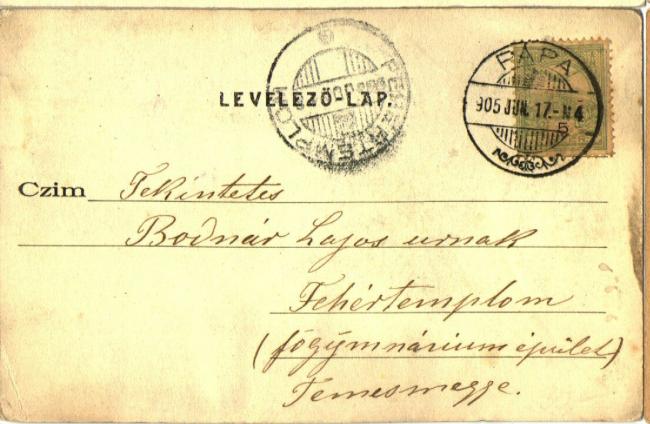 PÁPA
FEHÉRTEMPLOM
LEVELEZŐ-LAP.
905 JUN. 17.-N4
5
Czim Tekintetes
Bodnár Lajos urnak
Fehértemplom
(főgymnárium épület)
Temesmegye.